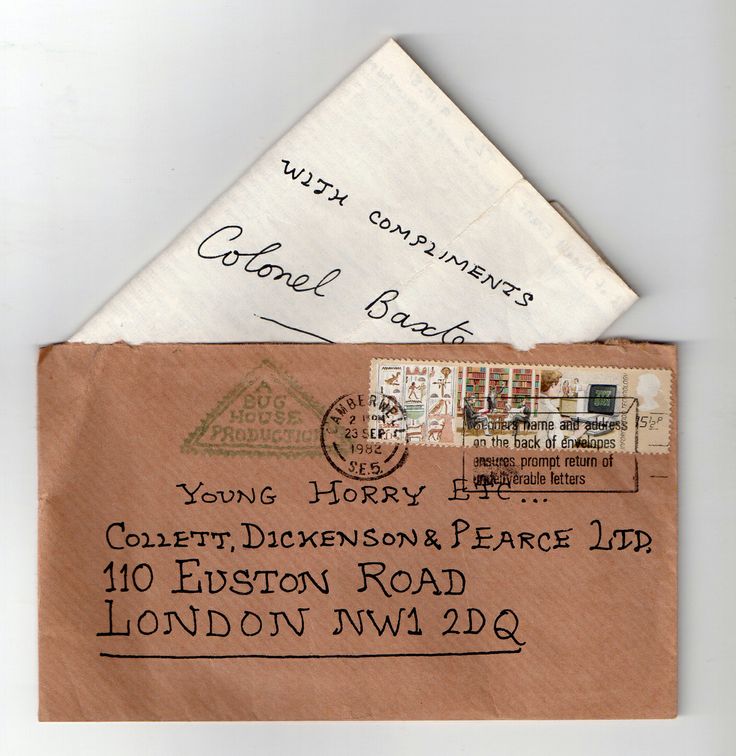 WITH COMPLIMENTS
Colonel Baxte
A
BUG
HOUSE
PRODUCTION
CAMBERWELL
2 PM
23 SEP
1982
S.E.5.
Senders name and address
on the back of envelopes
ensures prompt return of
undeliverable letters
15½P
YOUNG HORRY ETC...
COLLETT, DICKENSON & PEARCE LTD.
110 EUSTON ROAD
LONDON NW1 2DQ